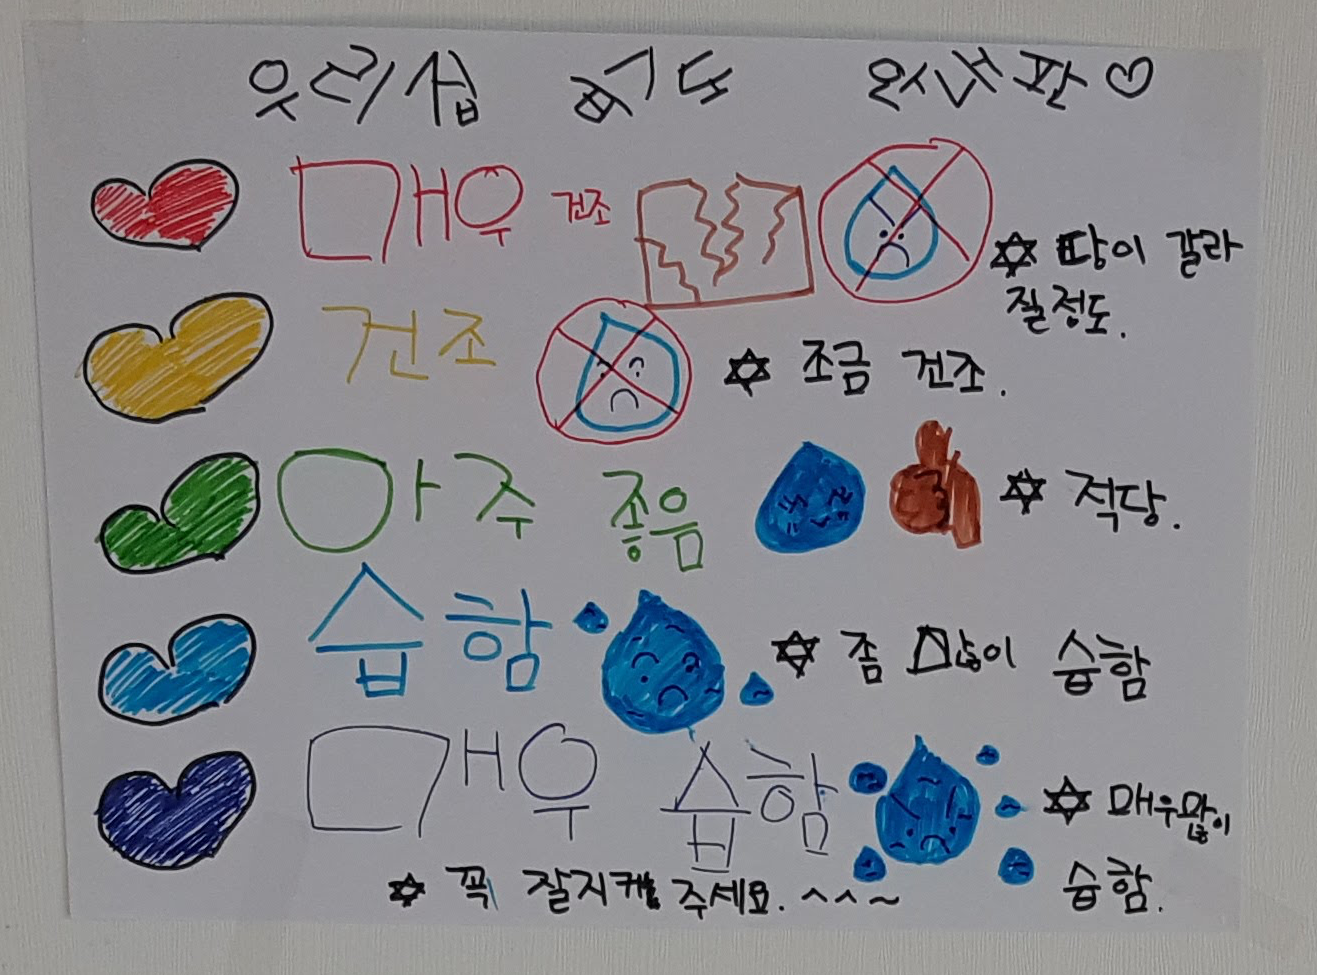 우리 습 도 안내판♡
매우 건조 ✡ 땅이 갈라
질정도.
건조 ✡ 조금 건조.
아주 좋음 ✡ 적당.
습함 ✡ 좀 많이 습함
매우 습함 ✡ 매우많이
습함.
✡ 꼭 잘지켜 주세요. ^^~